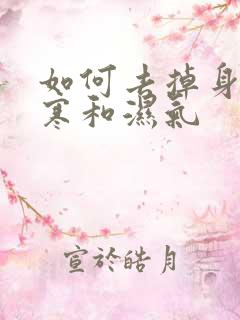 如何去掉身
寒和濕氣
宣於皓月